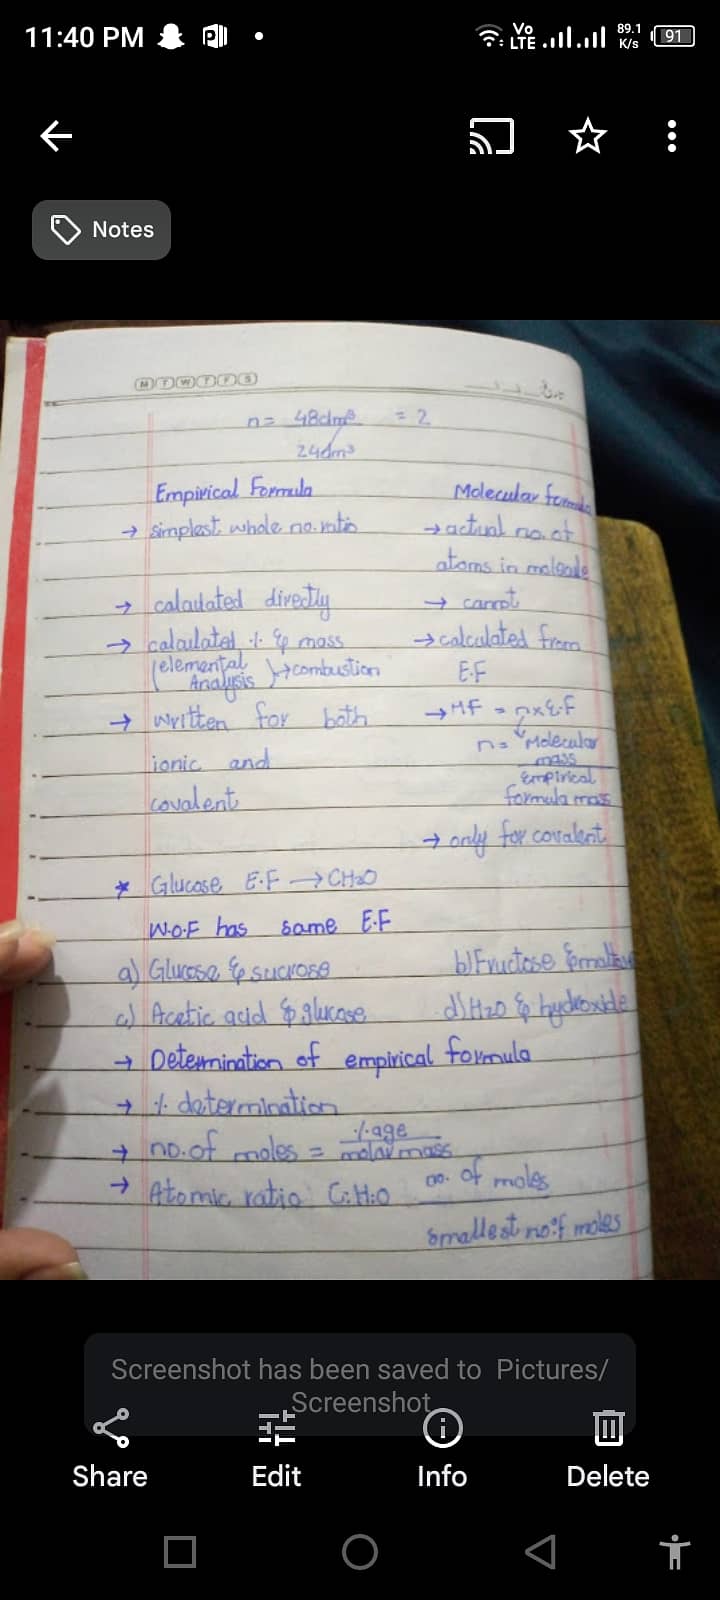 11:40 PM
Vo LTE 89.1 K/s 91
Notes
M T W T F S
n = 48dm³ = 2
24dm³
Empirical Formula
Molecular formula
→ simplest whole no. ratio
→ actual no. of
atoms in molecule
→ calculated directly
→ cannot
→ calculated % & mass
(elemental Analysis) → combustion
→ calculated from
E.F
→ written for both
ionic and
covalent
→ MF = n x E.F
n = Molecular mass
Empirical formula mass
→ only for covalent
* Glucose E.F → CH2O
W.O.F has same E.F
a) Glucose & sucrose
b) Fructose & maltose
c) Acetic acid & glucose
d) H2O & hydroxide
→ Determination of empirical formula
→ % determination
→ no. of moles = %age
molar mass
→ Atomic ratio C:H:O no. of moles
smallest no. of moles
Screenshot has been saved to Pictures/
Screenshot
Share Edit Info Delete